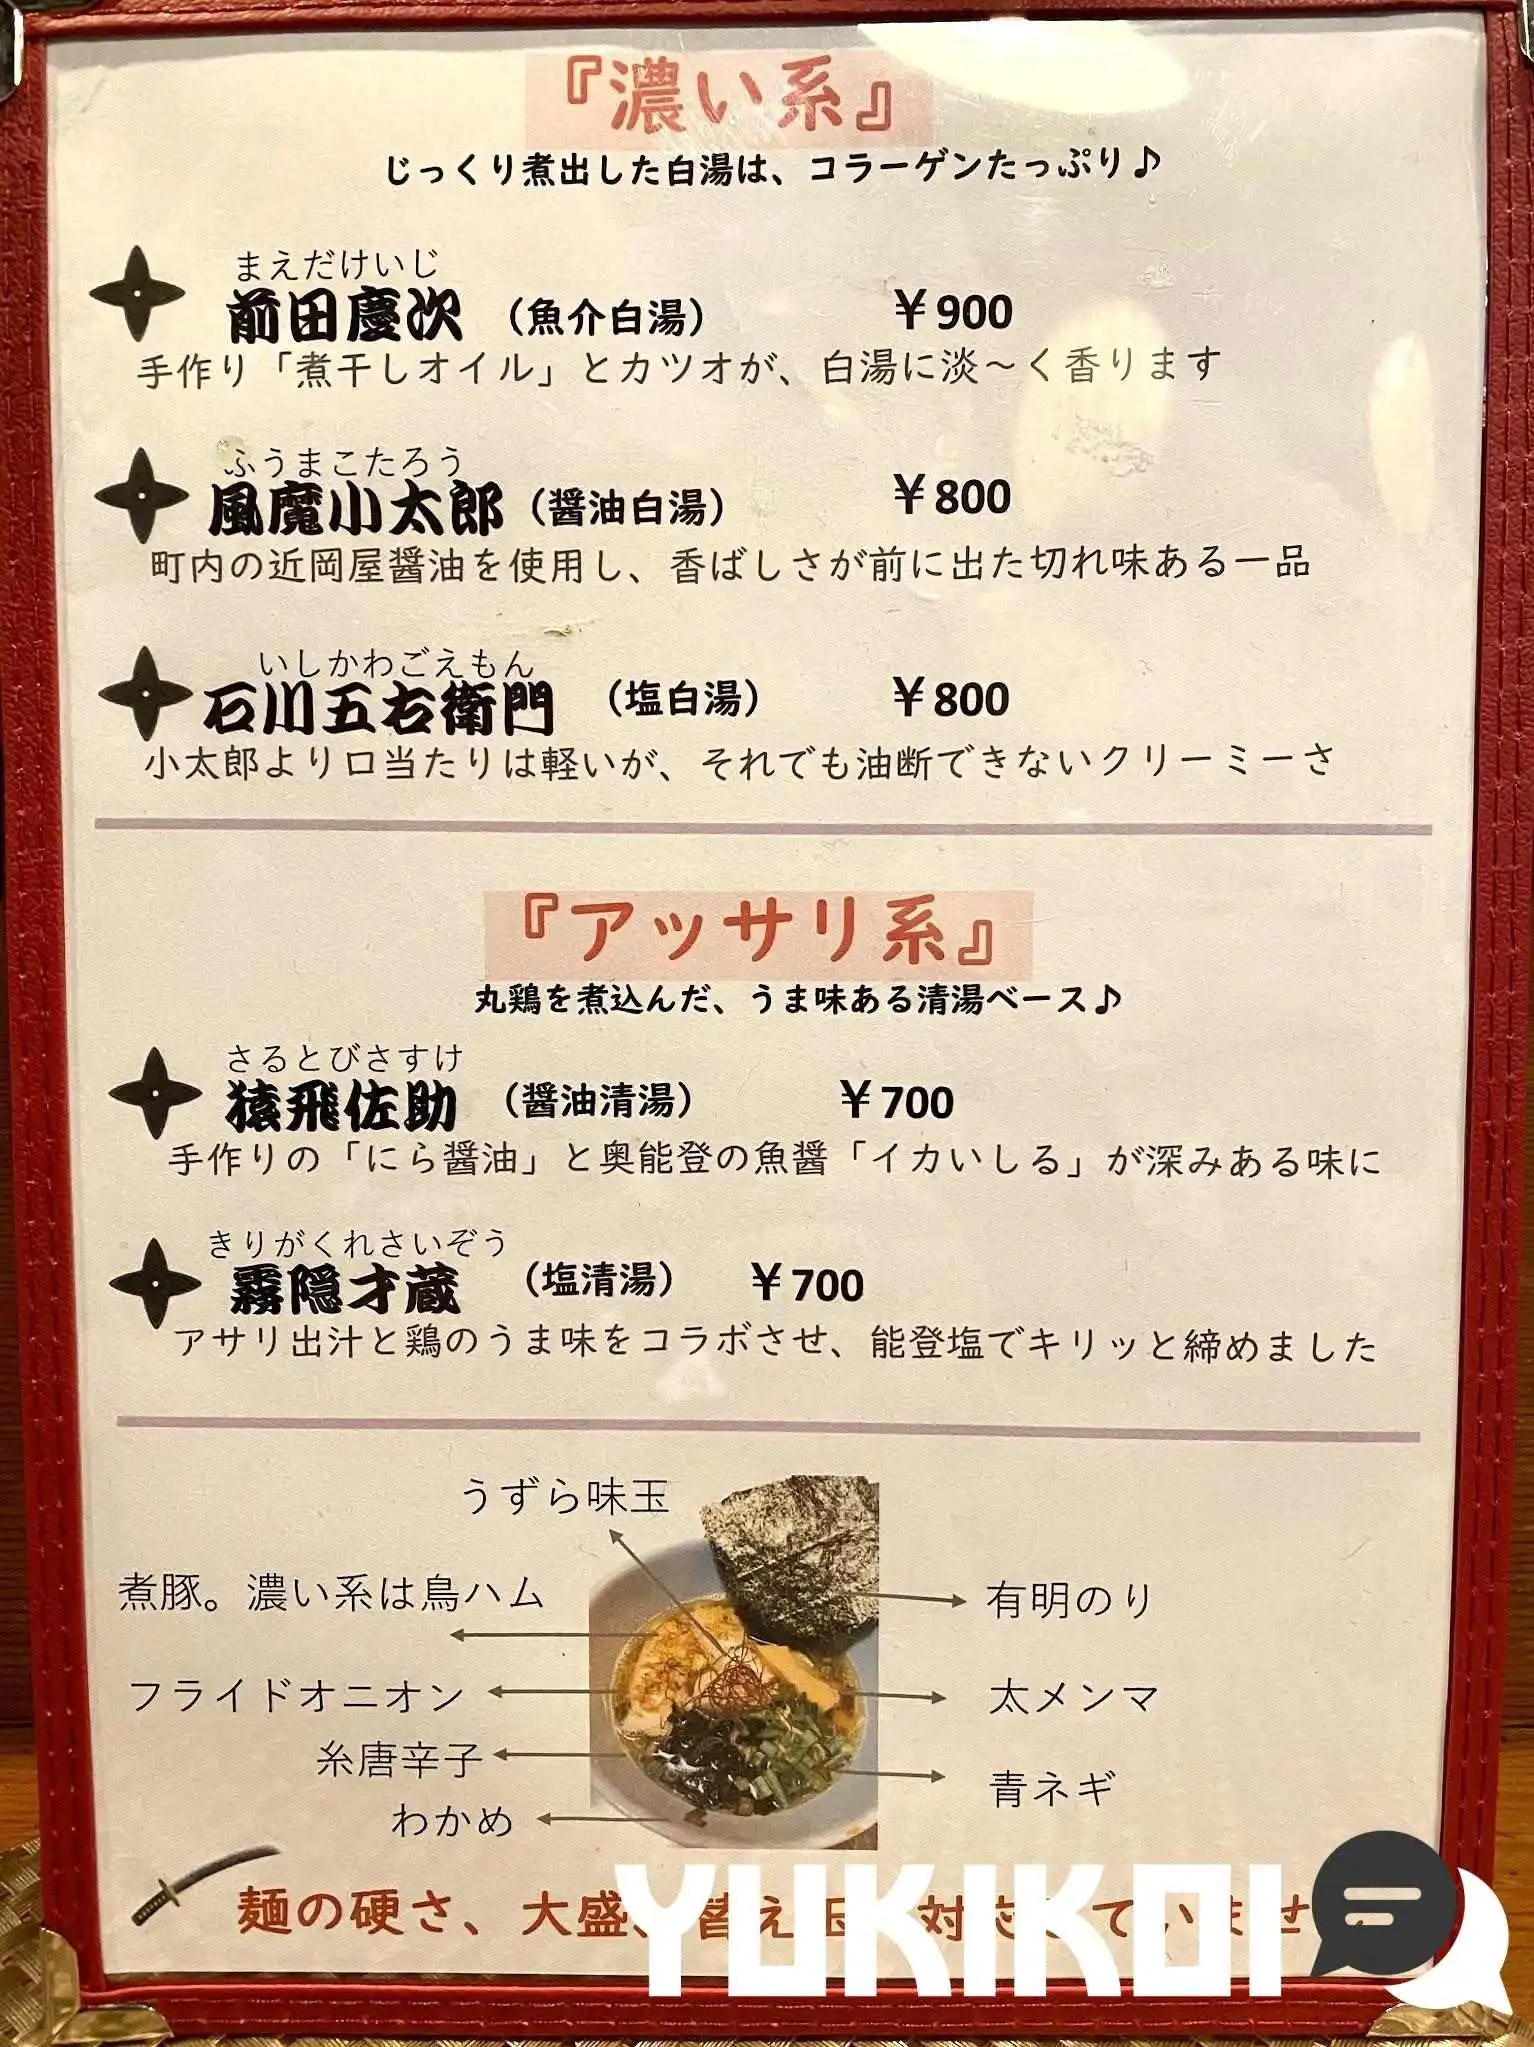 『濃い系』
じっくり煮出した白湯は、コラーゲンたっぷり♪
まえだけいじ
前田慶次 （魚介白湯） ￥900
手作り「煮干しオイル」とカツオが、白湯に淡～く香ります
ふうまこたろう
風魔小太郎（醤油白湯） ￥800
町内の近岡屋醤油を使用し、香ばしさが前に出た切れ味ある一品
いしかわごえもん
石川五右衛門 （塩白湯） ￥800
小太郎より口当たりは軽いが、それでも油断できないクリーミーさ
『アッサリ系』
丸鶏を煮込んだ、うま味ある清湯ベース♪
さるとびさすけ
猿飛佐助 （醤油清湯） ￥700
手作りの「にら醤油」と奥能登の魚醤「イカいしる」が深みある味に
きりがくれさいぞう
霧隠才蔵 （塩清湯） ￥700
アサリ出汁と鶏のうま味をコラボさせ、能登塩でキリッと締めました
うずら味玉
煮豚。濃い系は鳥ハム
有明のり
フライドオニオン
太メンマ
糸唐辛子
青ネギ
わかめ
麺の硬さ、大盛、替え玉 対応していませ
YUKIKOI